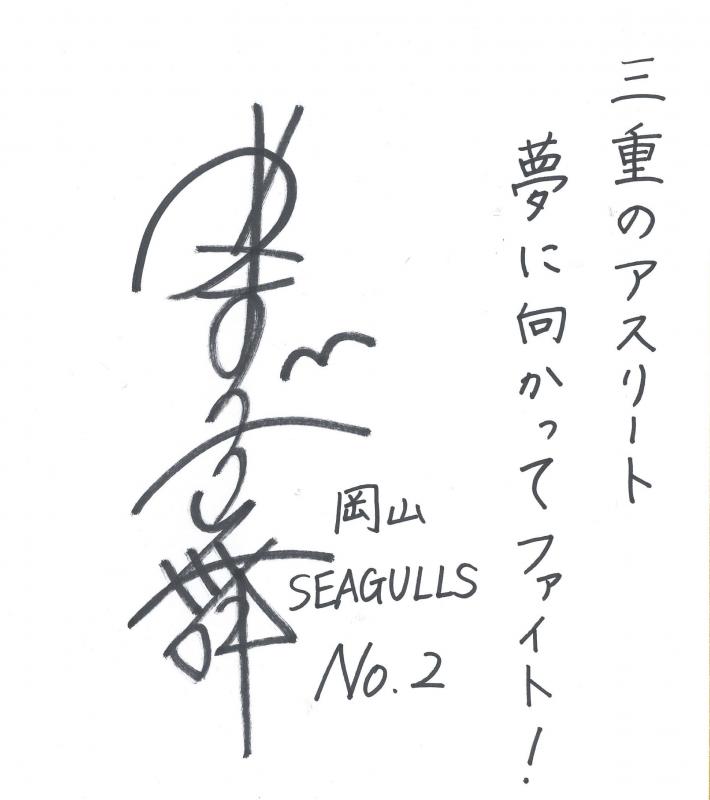 三重のアスリート
夢に向かってファイト！
岡山
SEAGULLS
No.2